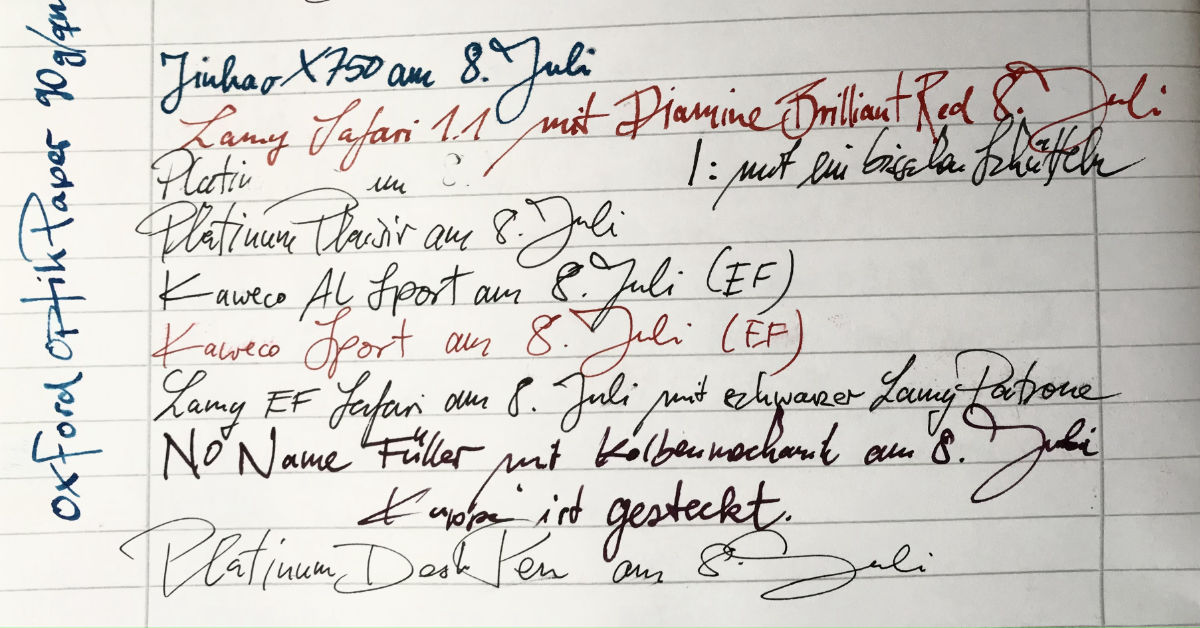 Oxford Optik Paper 90 g/qm
Jinhao X750 am 8. Juli
Lamy Safari 1.1 mit Diamine Brilliant Red 8. Juli
Platin
!: mit ein bisschen Schütteln
Platinum Plaisir am 8. Juli
Kaweco AL Sport am 8. Juli (EF)
Kaweco Sport am 8. Juli (EF)
Lamy EF Safari am 8. Juli mit schwarzer Lamy Patrone
No Name Füller mit Kolbenmechanik am 8. Juli
Kappe ist gesteckt.
Platinum Desk Pen am 8. Juli